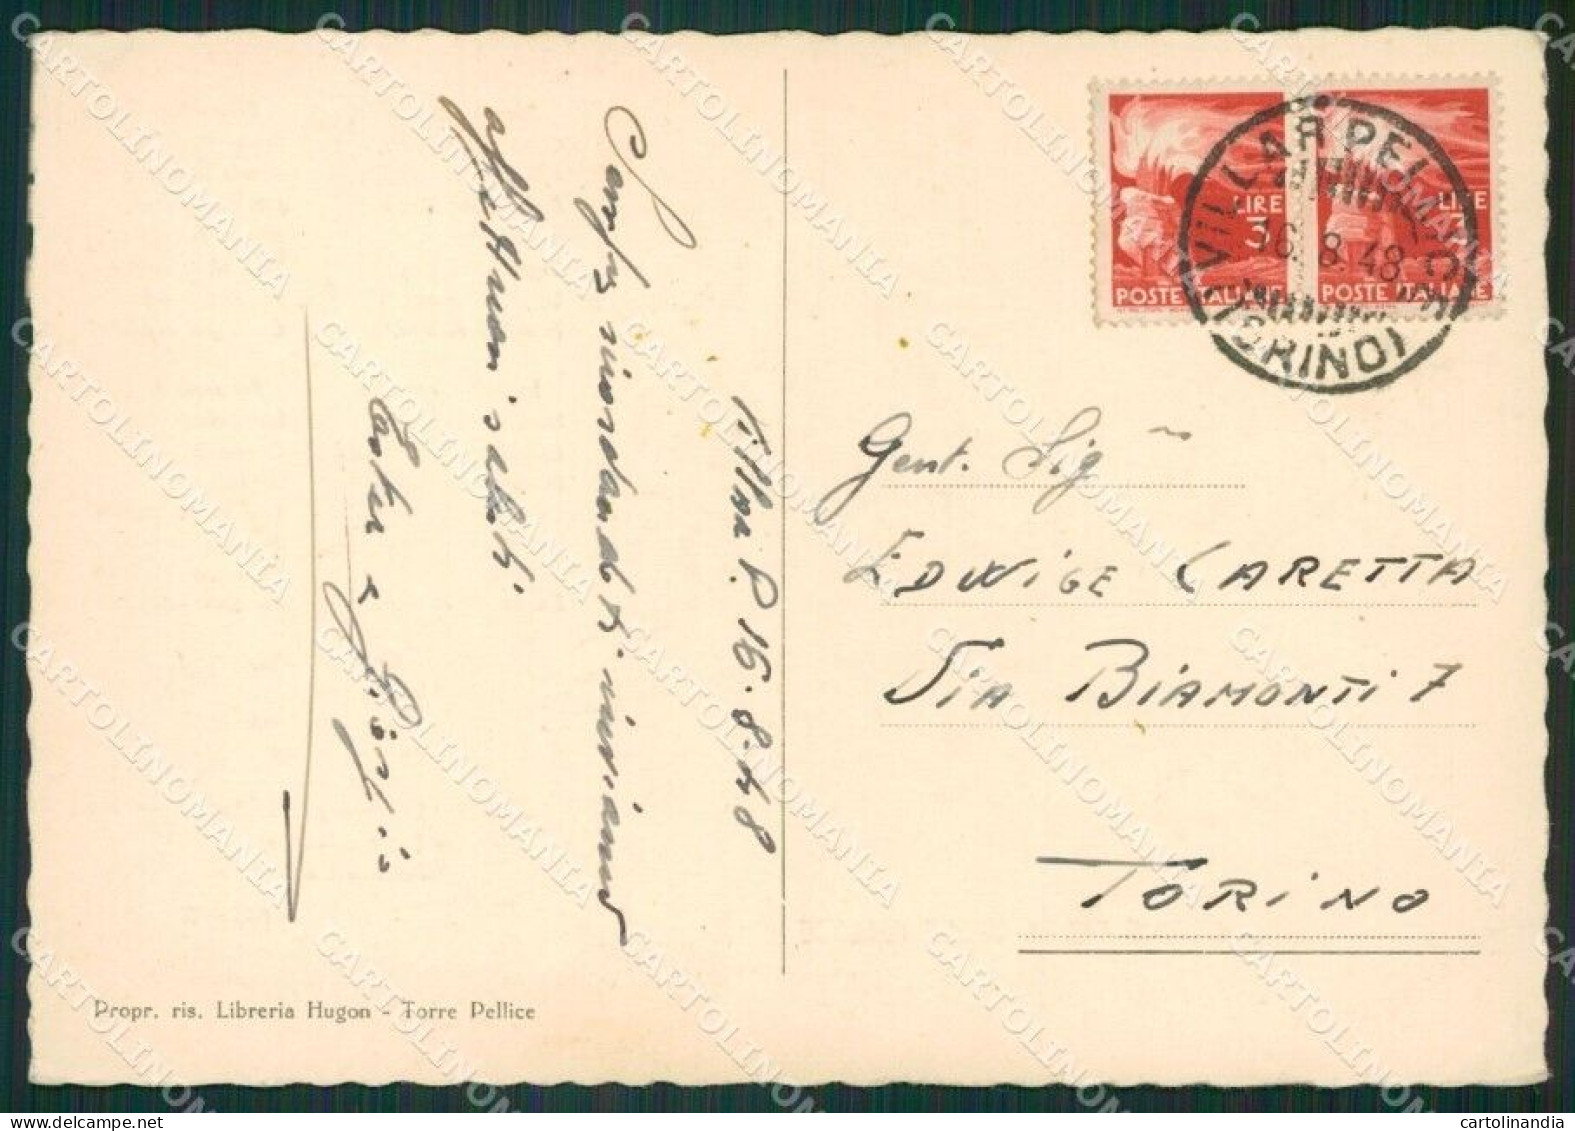 Villar P. 16.8.48
Sempre ricordandoti inviamo
affettuosi saluti.
Ester e Giorgio
Propr. ris. Libreria Hugon - Torre Pellice
LIRE
3
POSTE ITALIANE
LIRE
3
POSTE ITALIANE
VILLAR PELLICE
16. 8. 48
(TORINO)
Gent. Sig
EDWIGE CARETTA
VIA BIAMONTI 7
TORINO
CARTOLINOMANIA
cartolinandia